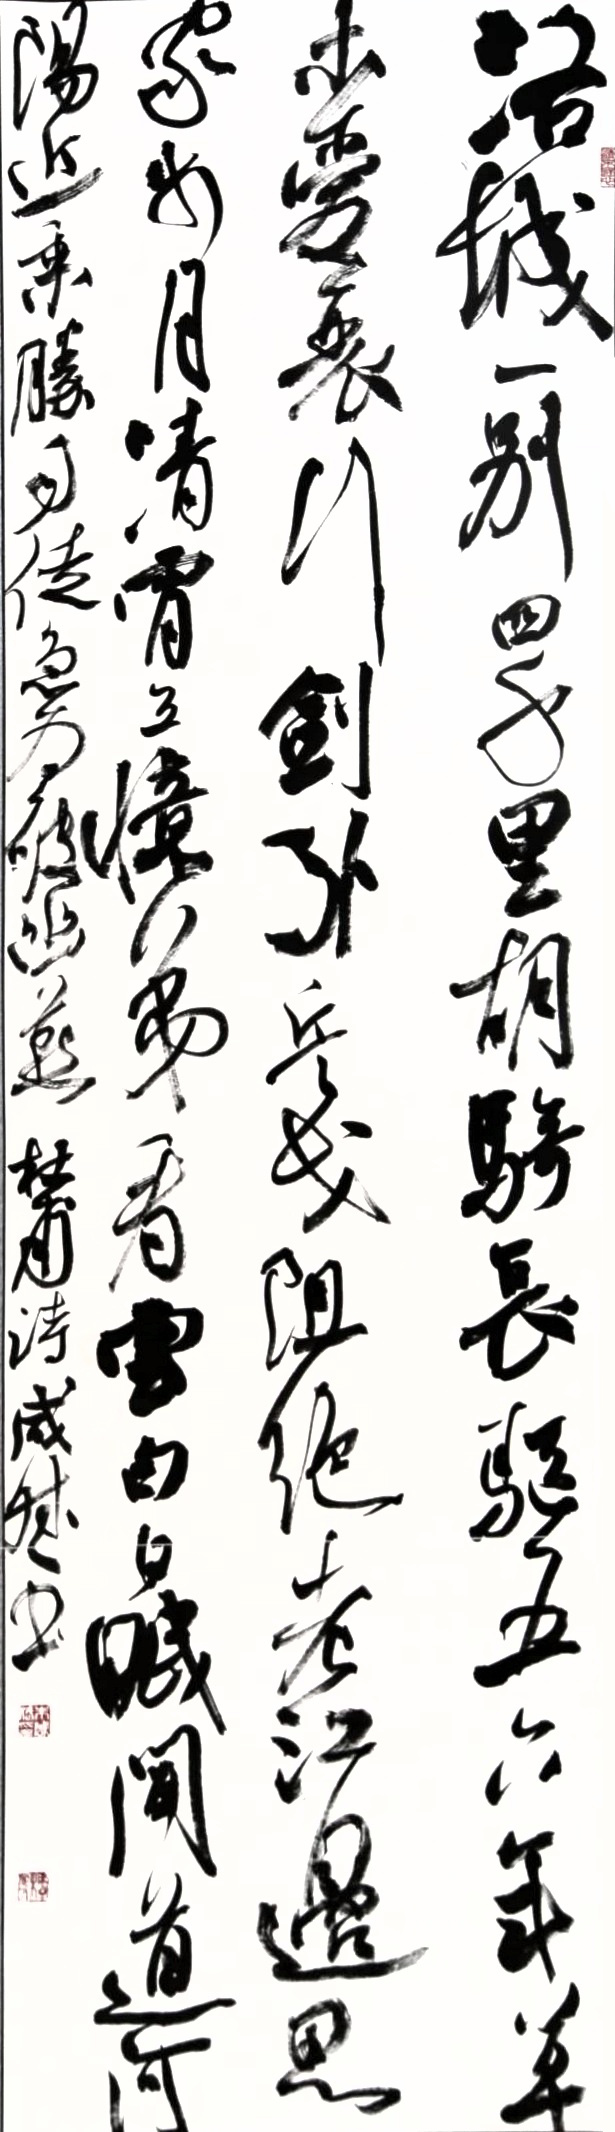 洛城一別四千里胡騎長驅五六年草
木變衰行劍外兵戈阻絕老江邊思
家步月清宵立憶弟看雲白日眠聞道河
陽近乘勝司徒急為破幽燕 杜甫詩 书